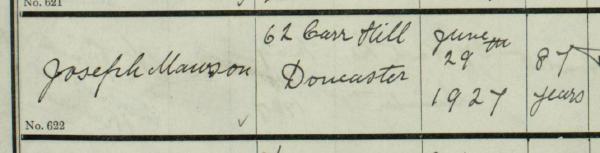 No. 621
Joseph Mawson
62 Carr Hill
Doncaster
June
29th
1927
87
years
No. 622